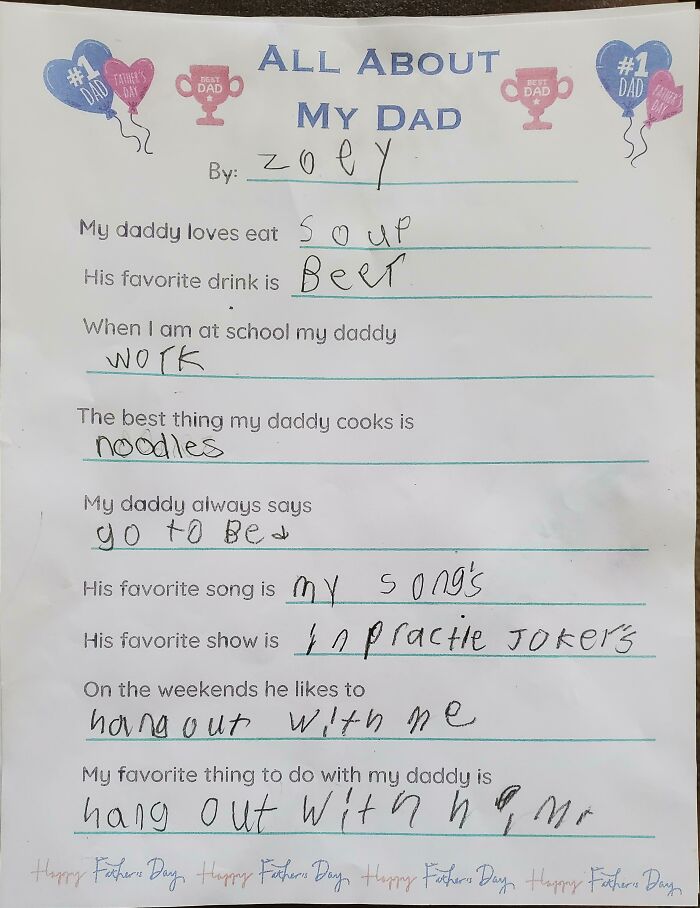 #1 DAD FATHER'S DAY BEST DAD ALL ABOUT BEST DAD #1 DAD FATHER'S DAY
MY DAD
By: zoey
My daddy loves eat soup
His favorite drink is Beer
When I am at school my daddy
work
The best thing my daddy cooks is
noodles
My daddy always says
go to Bed
His favorite song is my song's
His favorite show is inpractie JOKer's
On the weekends he likes to
hang out with me
My favorite thing to do with my daddy is
hang out with him
Happy Father's Day Happy Father's Day Happy Father's Day Happy Father's Day